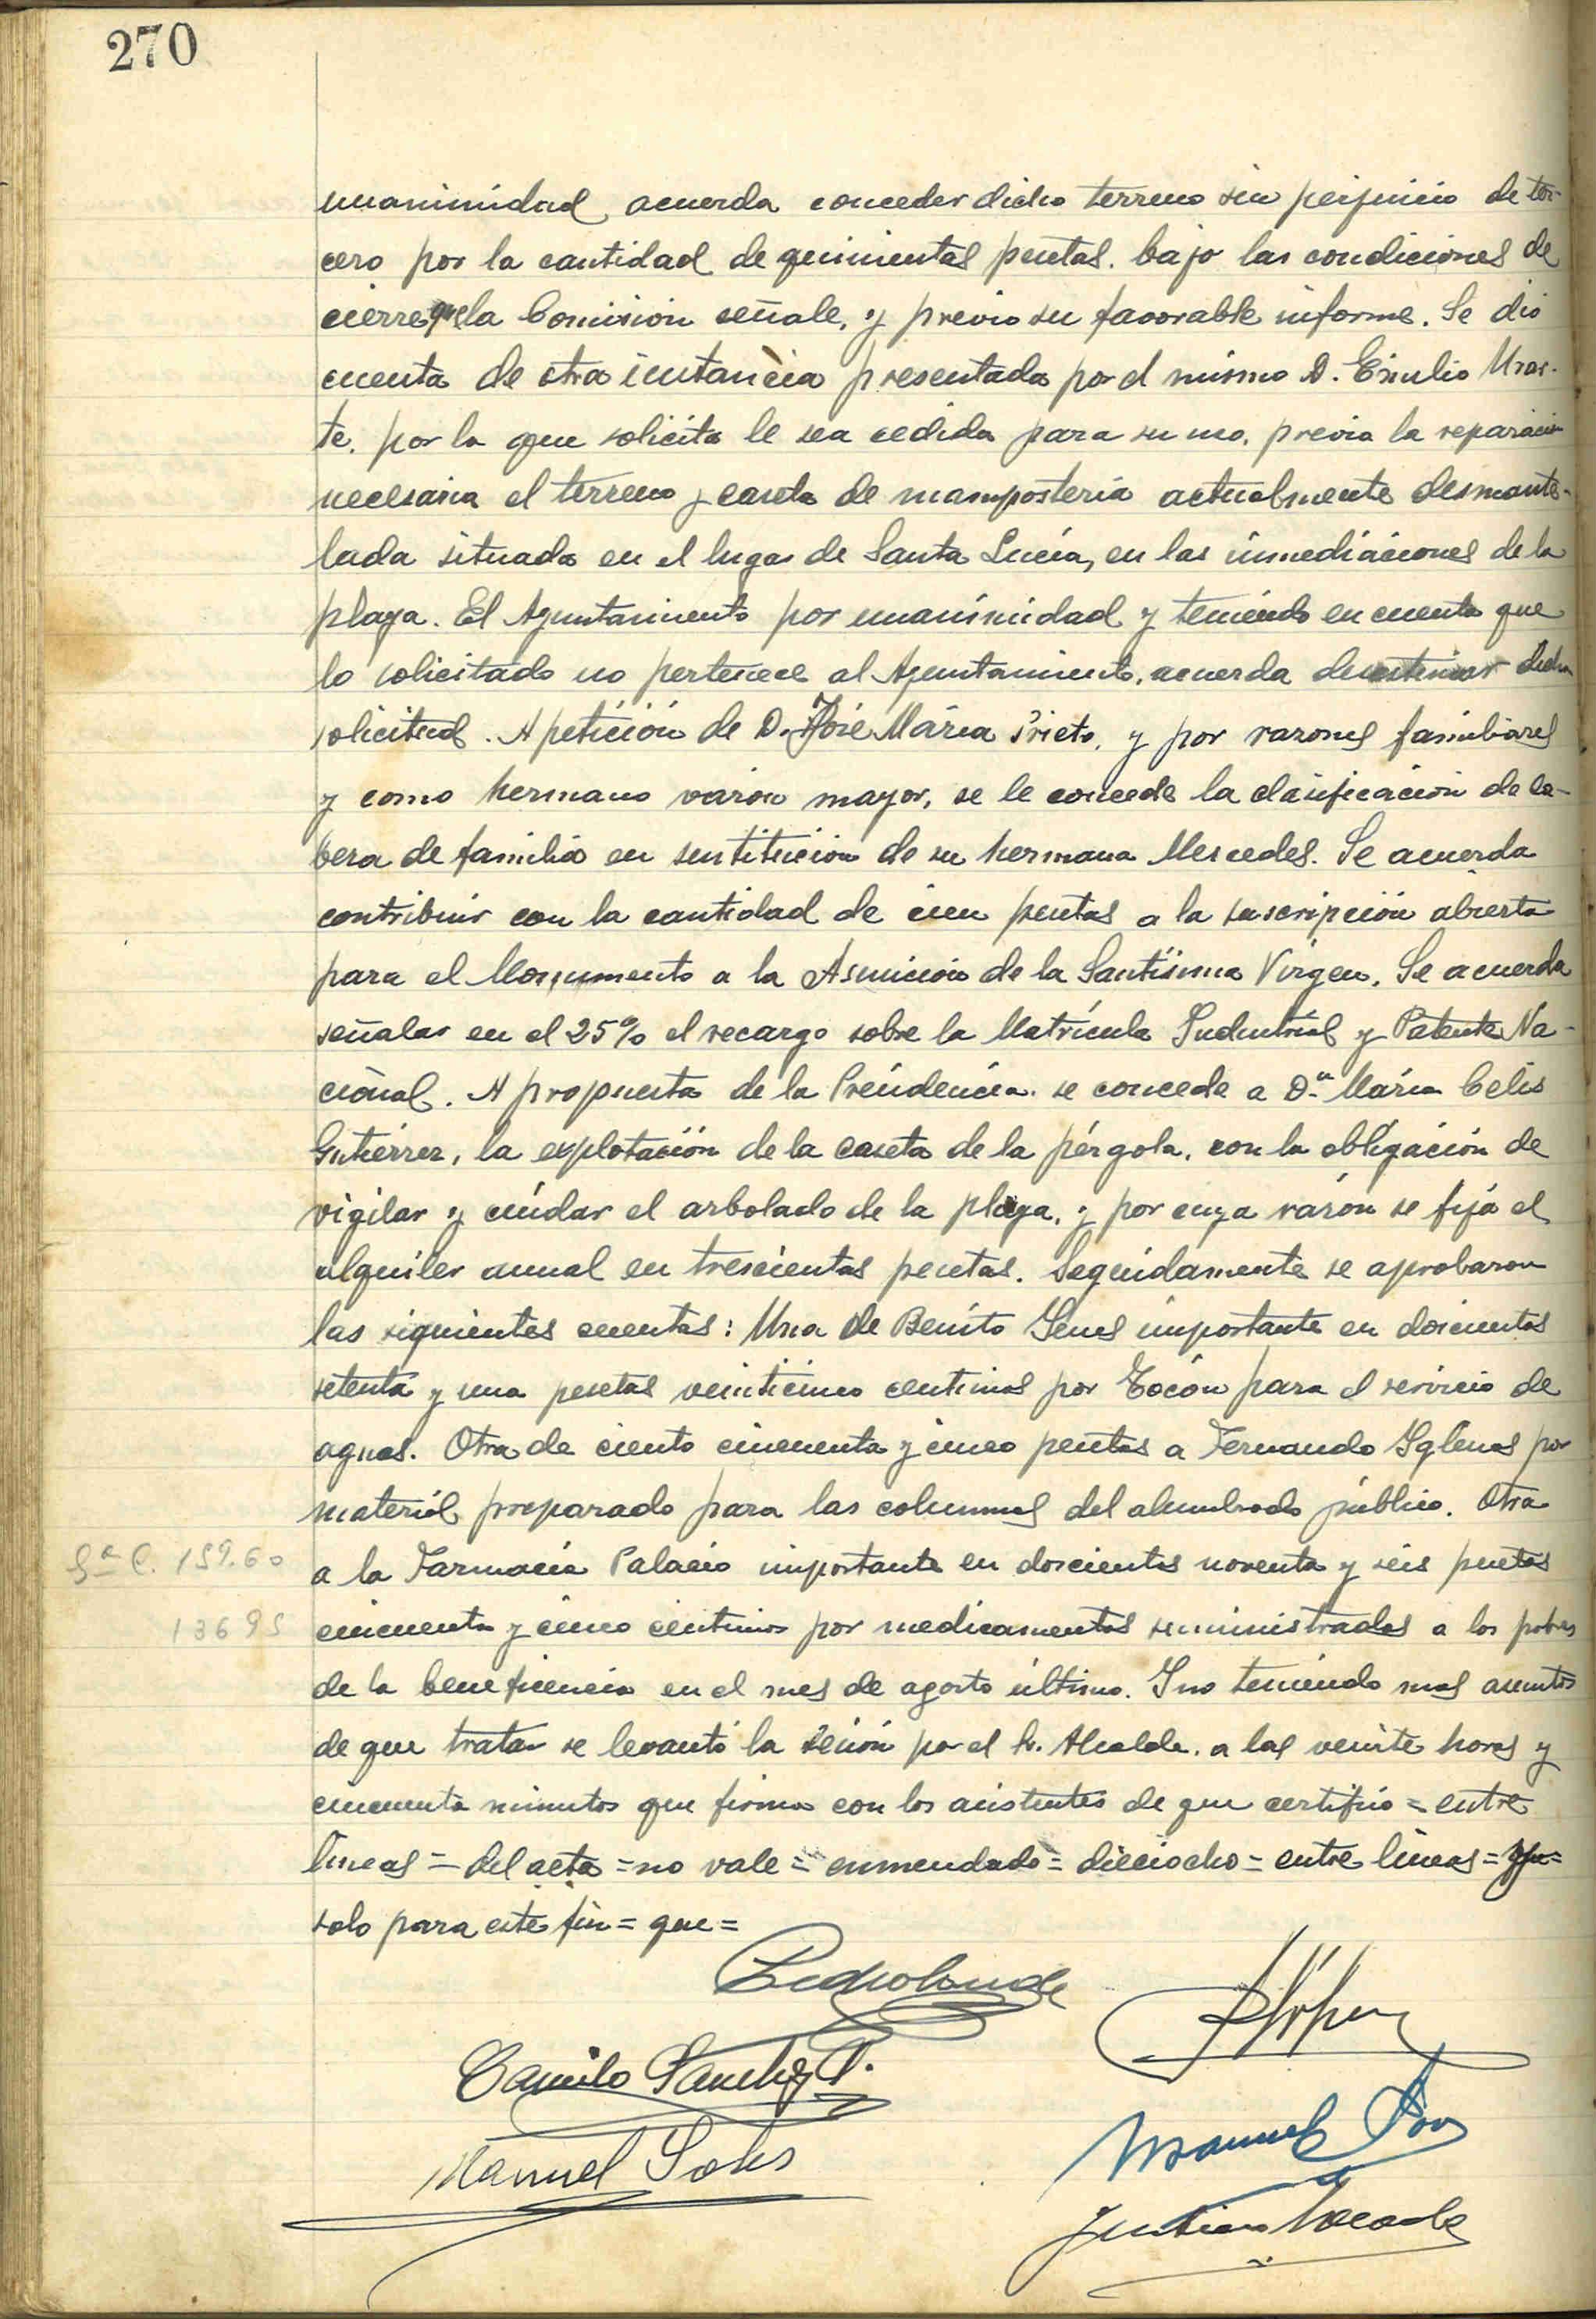 270
unanimidad acuerda conceder dicho terreno sin perjuicio de ter-
cero por la cantidad de quinientas pesetas. bajo las condiciones de
cierre que la Comisión señale, y previo su favorable informe. Se dio
cuenta de otra instancia presentada por el mismo D. Emilio Uras-
te. por la que solicita le sea cedida para su uso, previa la reparación
necesaria el terreno y caseta de mampostería actualmente desmante-
lada situada en el lugar de Santa Lucía, en las inmediaciones de la
playa. El Ayuntamiento por unanimidad y teniendo en cuenta que
lo solicitado no pertenece al Ayuntamiento, acuerda desestimar dicha
solicitud. A petición de D. José María Prieto, y por razones familiares
y como hermano varón mayor, se le concede la clasificación de ca-
beza de familia en sustitución de su hermana Mercedes. Se acuerda
contribuir con la cantidad de cien pesetas a la suscripción abierta
para el Monumento a la Asunción de la Santísima Virgen. Se acuerda
señalar en el 25% el recargo sobre la Matrícula Industrial y Patente Na-
cional. A propuesta de la Presidencia. se concede a Dª María Celis
Gutiérrez, la explotación de la caseta de la pérgola, con la obligación de
vigilar y cuidar el arbolado de la playa, y por cuya razón se fija el
alquiler anual en trescientas pesetas. Seguidamente se aprobaron
las siguientes cuentas: Una de Benito Genes importante en doscientas
setenta y una pesetas veinticinco centimos por Tocón para el servicio de
aguas. Otra de ciento cincuenta y cinco pesetas a Fernando Yglesias por
material preparado para las columnas del alumbrado público. Otra
Sª C. 159.60
a la Farmacia Palacio importante en doscientas noventa y seis pesetas
136 95
cincuenta y cinco centimos por medicamentos suministrados a los pobres
de la beneficencia en el mes de agosto último. Y no teniendo mas asuntos
de que tratar se levantó la sesión por el Sr. Alcalde. a las veinte horas y
cincuenta minutos que firma con los asistentes de que certifico = entre
líneas = del acta = no vale = enmendado = dieciocho = entre líneas =
solo para este fin = que =
Camilo Sanchez P.
Manuel Solis
Manuel